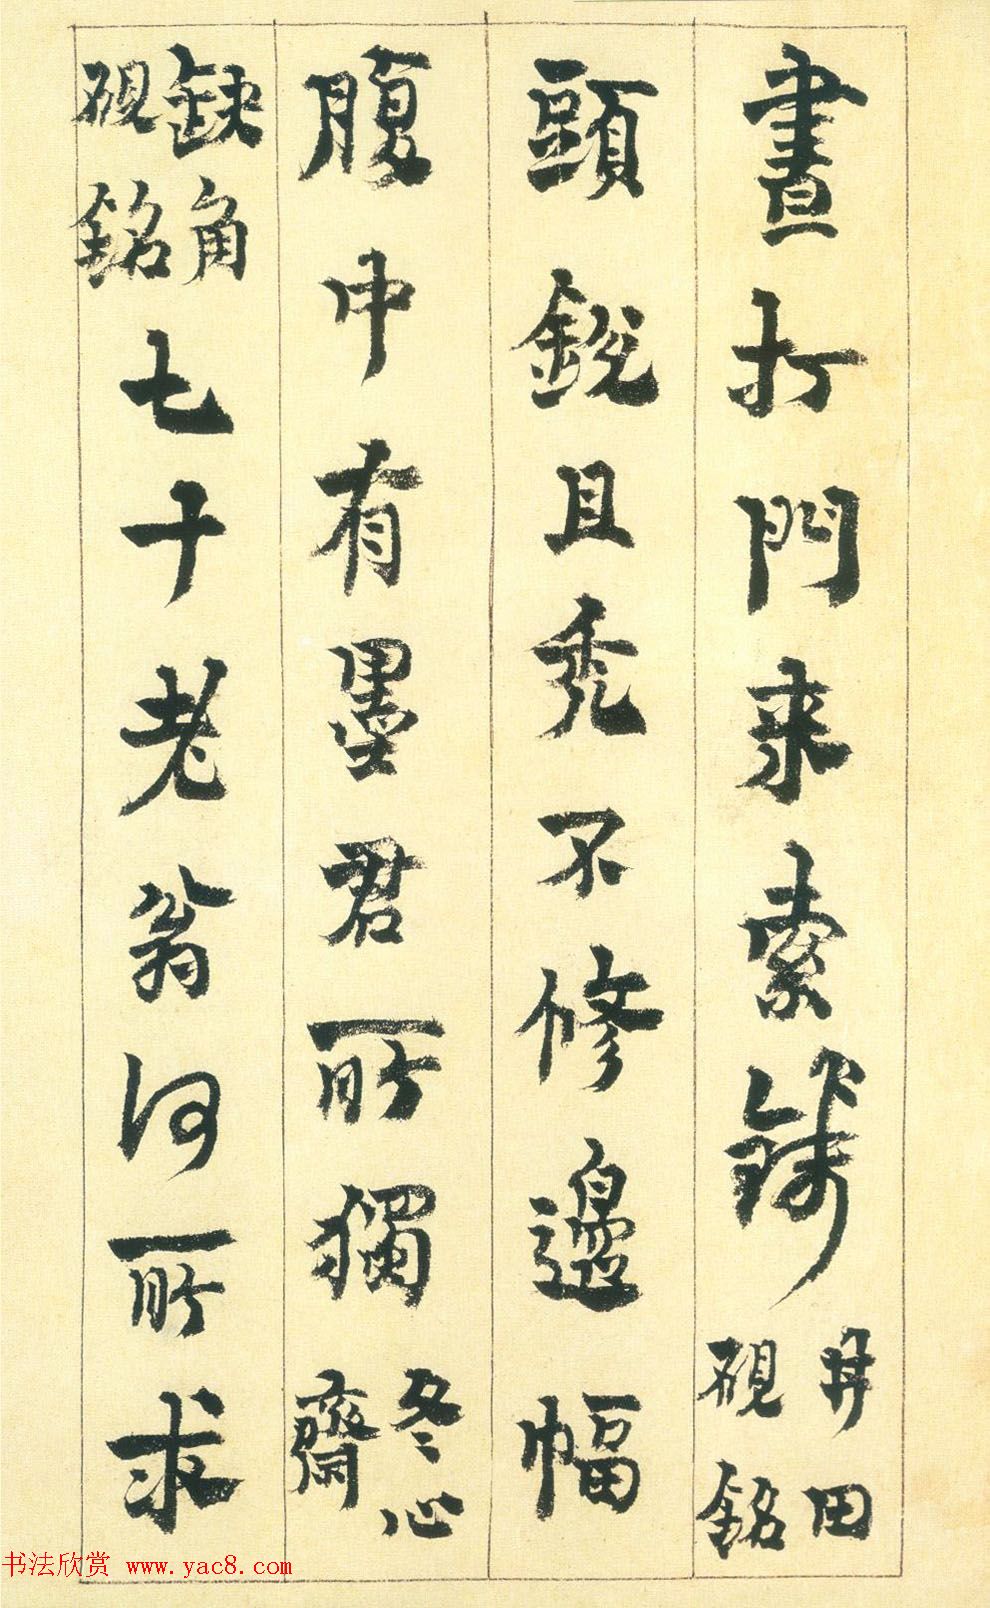 晝打門来索錢井田硯銘
頭銳且禿不修邊幅
腹中有墨君所獨冬心齋
缺角硯銘七十老翁何所求
书法欣赏 www.yac8.com